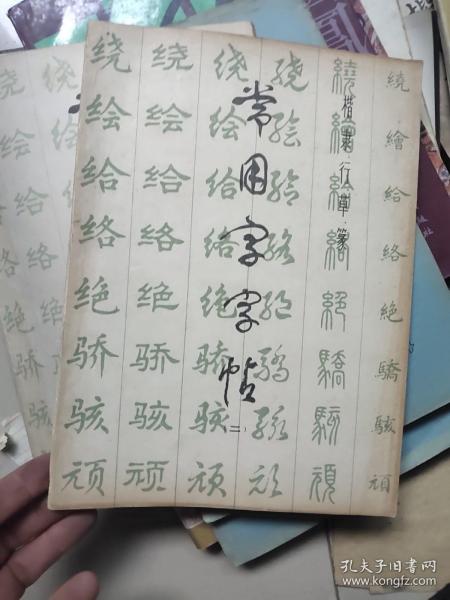 常用字字帖
二
楷隸·行草·篆
繞繪給絡絕驕駭頑
繞繪給絡絕驕駭頑
绕绘给络绝骄骇顽
绕绘给络绝骄骇顽
绕绘给络绝骄骇顽
绕绘给络绝骄骇顽
孔夫子旧书网
www.kongfz.com